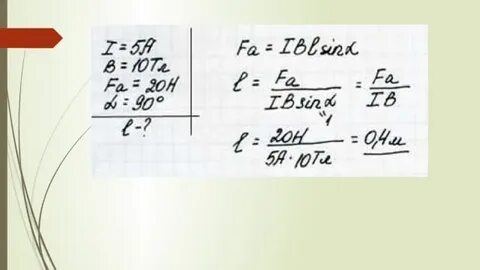 I = 5А
В = 10Тл
Fа = 20Н
α = 90°
l - ?
Fа = IBlsinα
l = Fа / IBsinα = Fа / IB
"1
l = 20Н / 5А · 10Тл = 0,4м